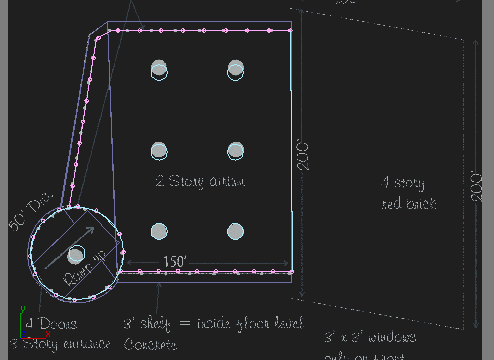 200'
2 Story atrium
4 story
red brick
200'
50' Dia.
Ramp up
150'
4 Doors
3 Story entrance
3' shelf = inside floor level
Concrete
3' x 3' windows
only on front
y